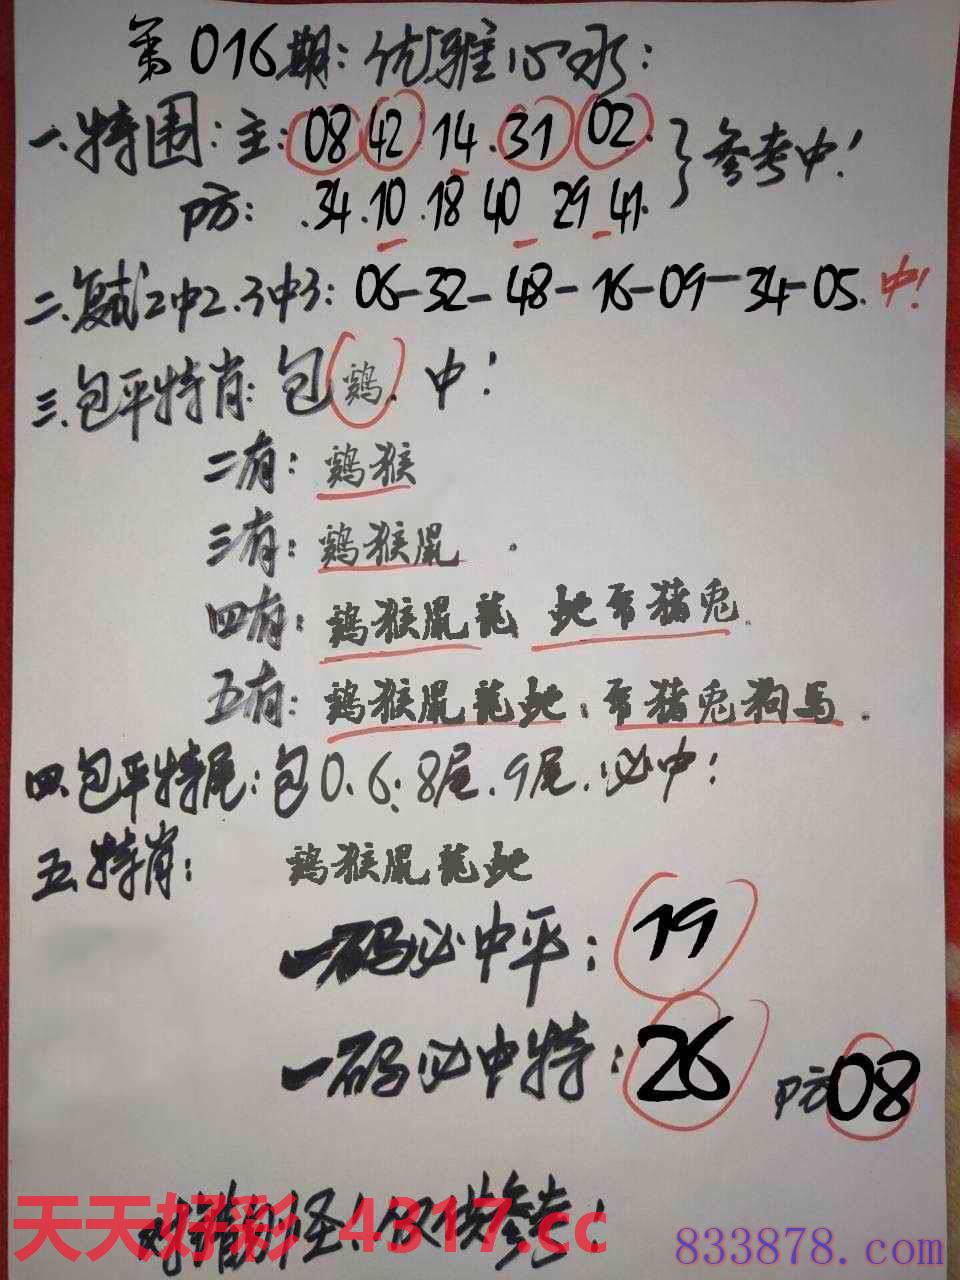 第016期:优雅心水:
一.特围:主:08 42 14.31 02. 参考中!
防: .34.10.18 40 29 41.
二.复试2中2.3中3: 06-32-48-16-09-34-05. 中!
三.包平特肖: 包鷄. 中!
二有: 鷄猴
三有: 鷄猴鼠.
四有: 鷄猴鼠龍 虵乕猪兎.
五有: 鷄猴鼠龍虵:乕猪兎狗马.
四.包平特尾:包0.6.8尾.9尾.必中!
五.特肖: 鷄猴鼠龍虵
一码必中平: 19
一码必中特: 26 防08
对错勿怪!仅供参考!
天天好彩 4317.cc
833878.com